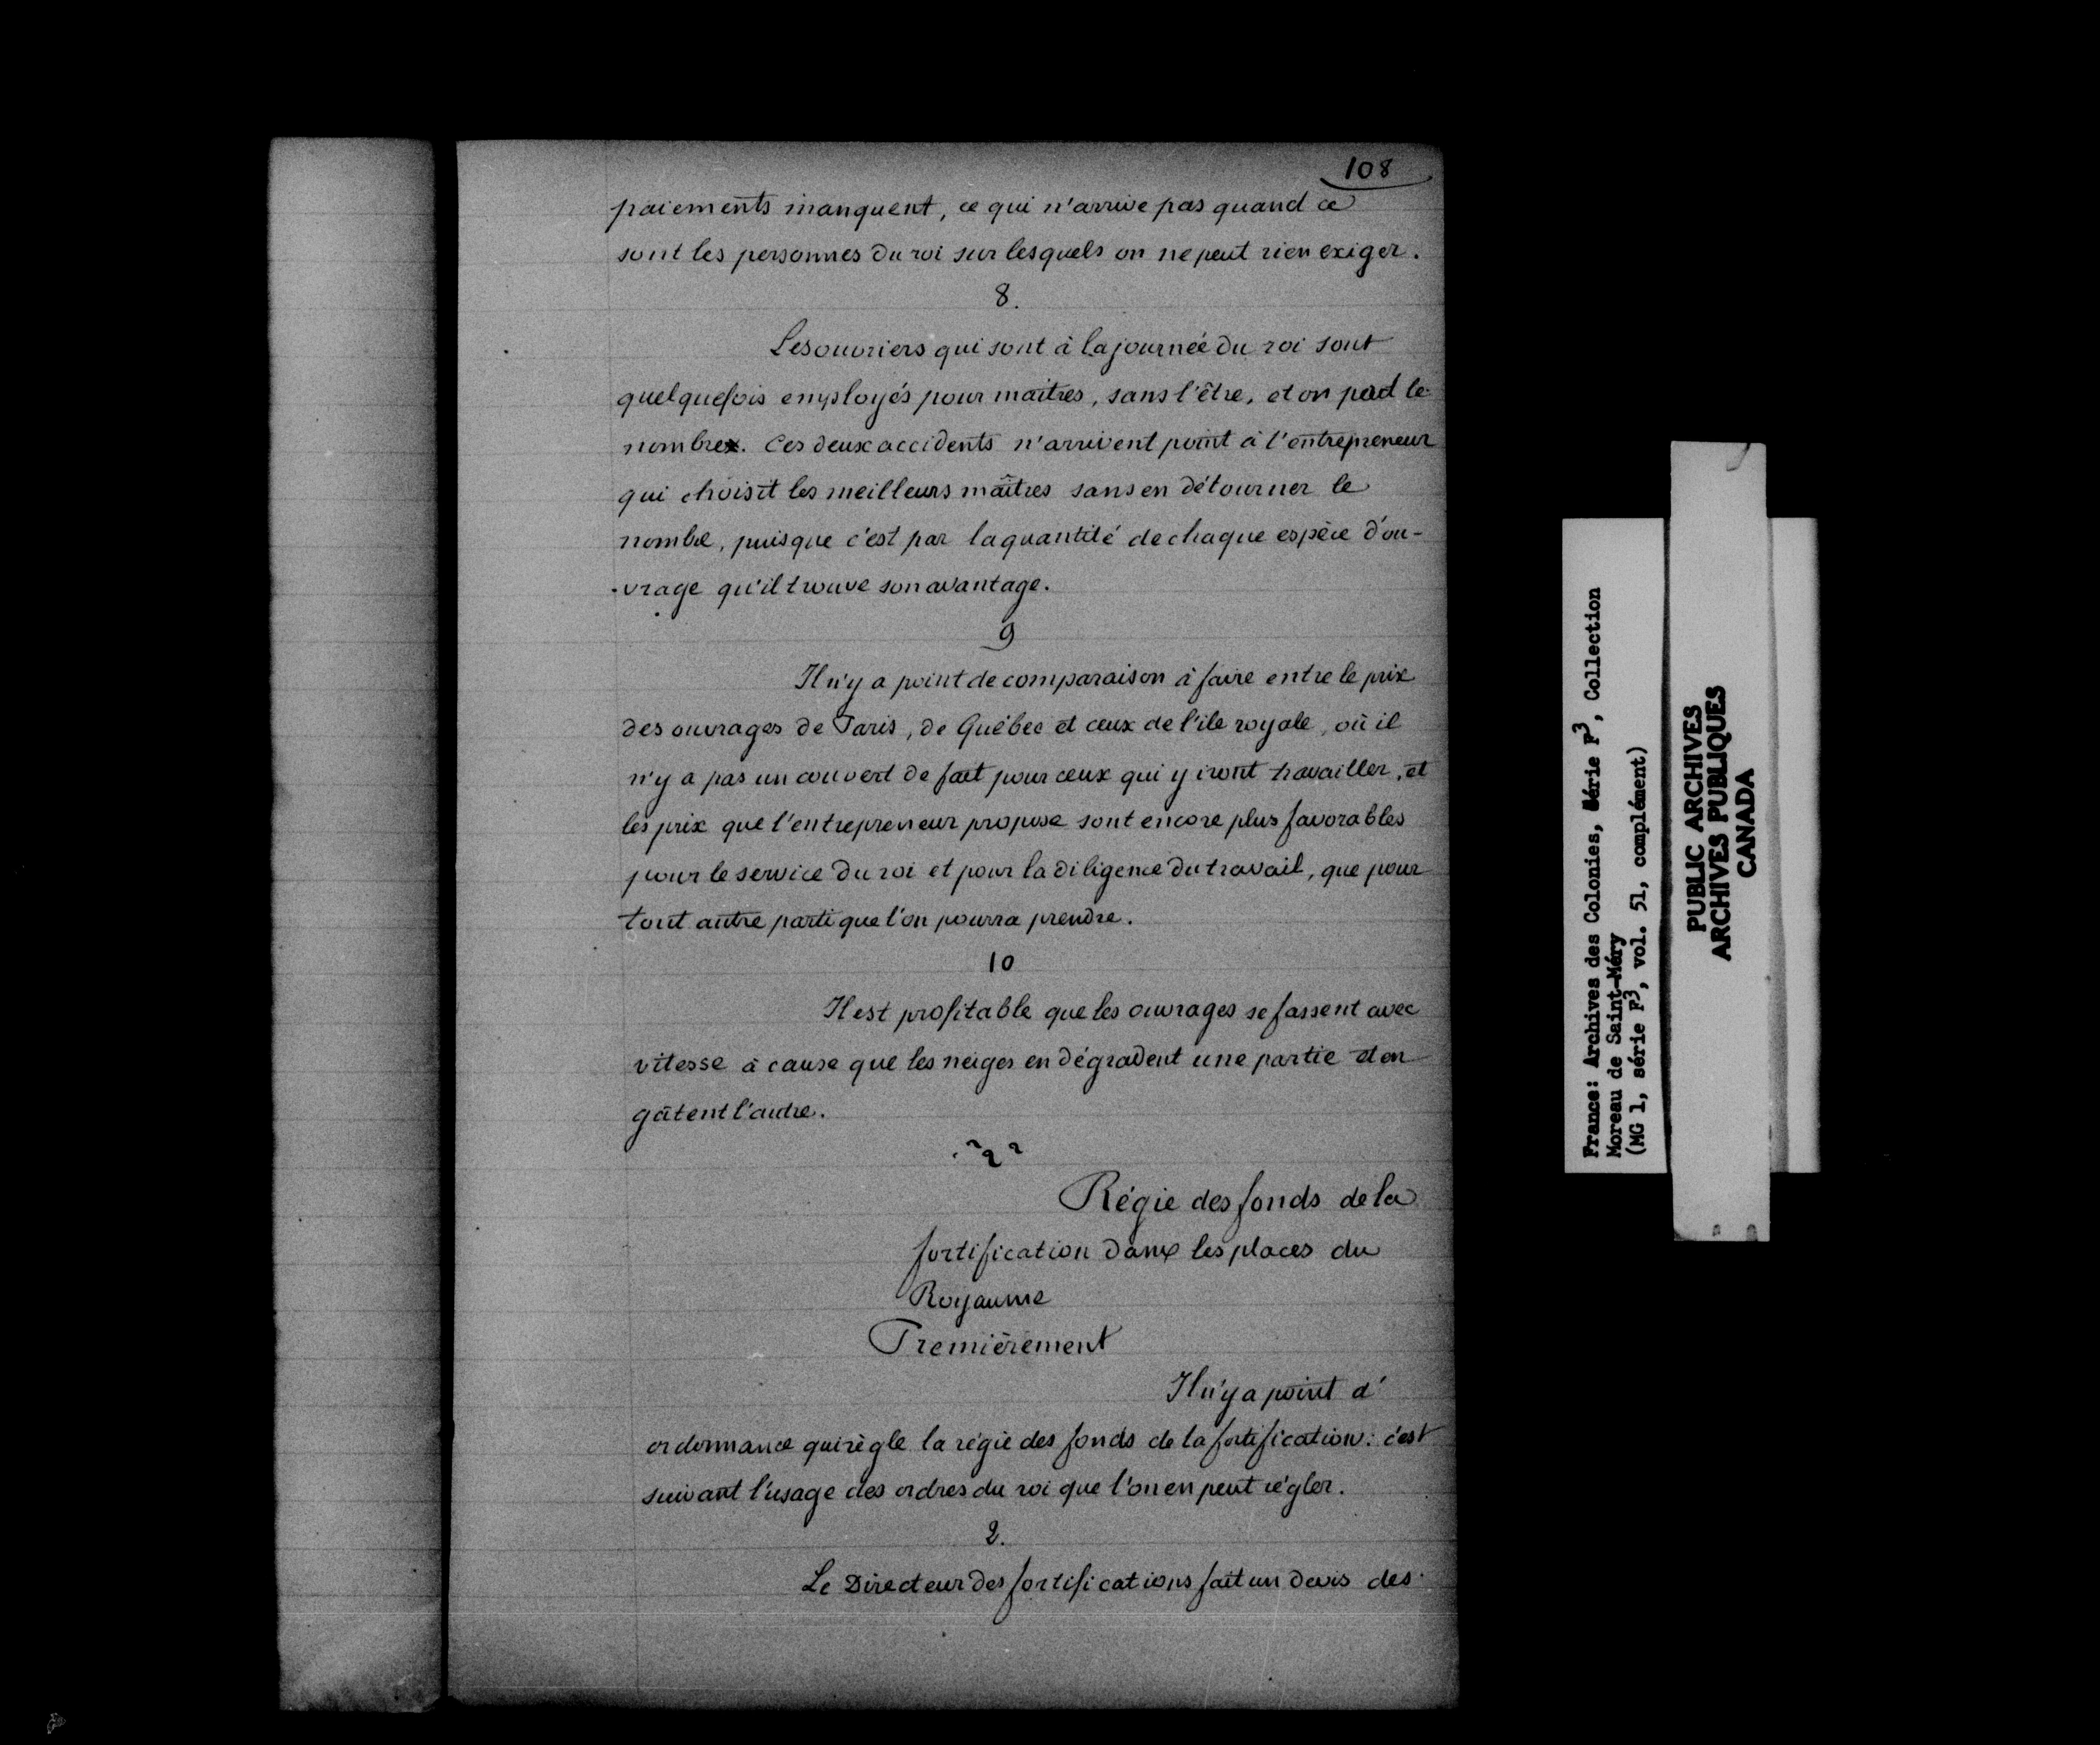 108
paiements manquent, ce qui n'arrive pas quand ce
sont les personnes du roi sur lesquels on ne peut rien exiger.
8.
Les ouvriers qui sont à la journée du roi sont
quelquefois employés pour maîtres, sans l'être, et on perd le
nombre. Ces deux accidents n'arrivent point à l'entrepreneur
qui choisit les meilleurs maîtres sans en détourner le
nombre, puisque c'est par la quantité de chaque espèce d'ou-
-vrage qu'il trouve son avantage.
9
Il n'y a point de comparaison à faire entre le prix
des ouvrages de Paris, de Québec et ceux de l'ile royale, où il
n'y a pas un couvert de fait pour ceux qui y iront travailler, et
les prix que l'entrepreneur propose sont encore plus favorables
pour le service du roi et pour la diligence du travail, que pour
tout autre parti que l'on pourra prendre.
10
Il est profitable que les ouvrages se fassent avec
vitesse à cause que les neiges en dégradent une partie et en
gâtent l'autre.
Régie des fonds de la
fortification dans les places du
Royaume
Premièrement
Il n'y a point d'
ordonnance qui règle la régie des fonds de la fortification: c'est
suivant l'usage des ordres du roi que l'on en peut régler.
2.
Le Directeur des fortifications fait un devis des
France: Archives des Colonies, Série F3, Collection
Moreau de Saint-Méry
(MG 1, série F3, vol. 51, complément)
PUBLIC ARCHIVES
ARCHIVES PUBLIQUES
CANADA